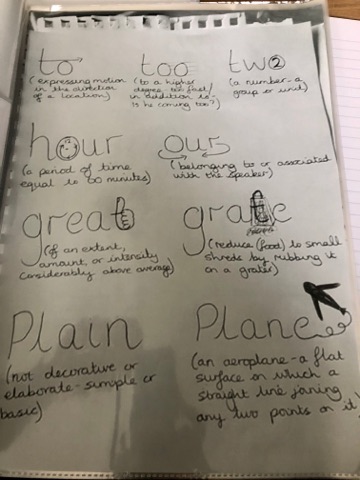 to too two
(expressing motion
in the direction
of a location)
(to a higher
degree, too fast/
in addition to-
is he coming too?)
(a number - a
group or unit)
hour our
(a period of time
equal to 60 minutes)
(belonging to or associated
with the speaker)
great grate
(of an extent,
amount, or intensity
considerably above average)
(reduce (food) to small
shreds by rubbing it
on a grater)
Plain Plane
(not decorative or
elaborate - simple or
basic)
(an aeroplane - a flat
surface on which a
straight line joining
any two points on it